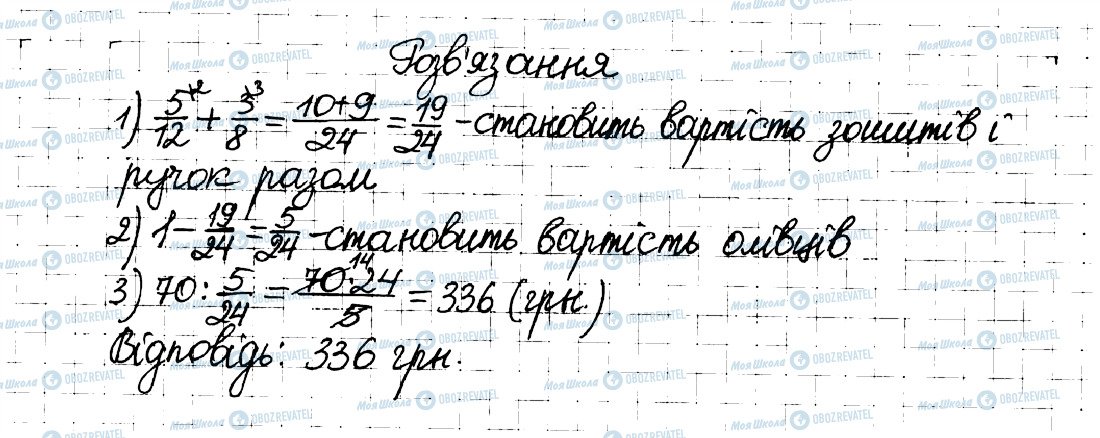 Розв'язання
1) 5/12 + 3/8 = 10+9/24 = 19/24 - становить вартість зошитів і
ручок разом
2) 1 - 19/24 = 5/24 - становить вартість олівців
3) 70 : 5/24 = 70·24/5 = 336 (грн.)
Відповідь: 336 грн.